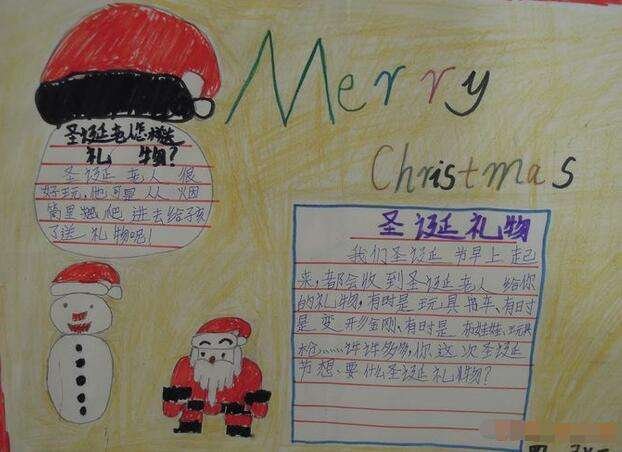 Merry
Christmas
圣诞老人怎样送
礼 物?
圣诞老人很
好玩,他可是从烟
筒里爬进去给孩
子送礼物呢!
圣诞礼物
我们圣诞节早上起
来,都会收到圣诞老人给你
的礼物,有时是玩具书车、有时
是变形金刚、有时是布娃娃、玩具
枪……许许多多,你这次圣诞
节想要什么圣诞礼物?